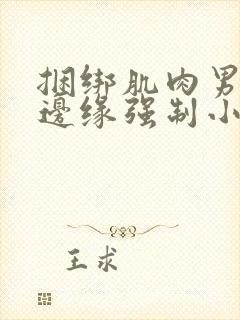 捆绑肌肉男
邊缘强制小
王求